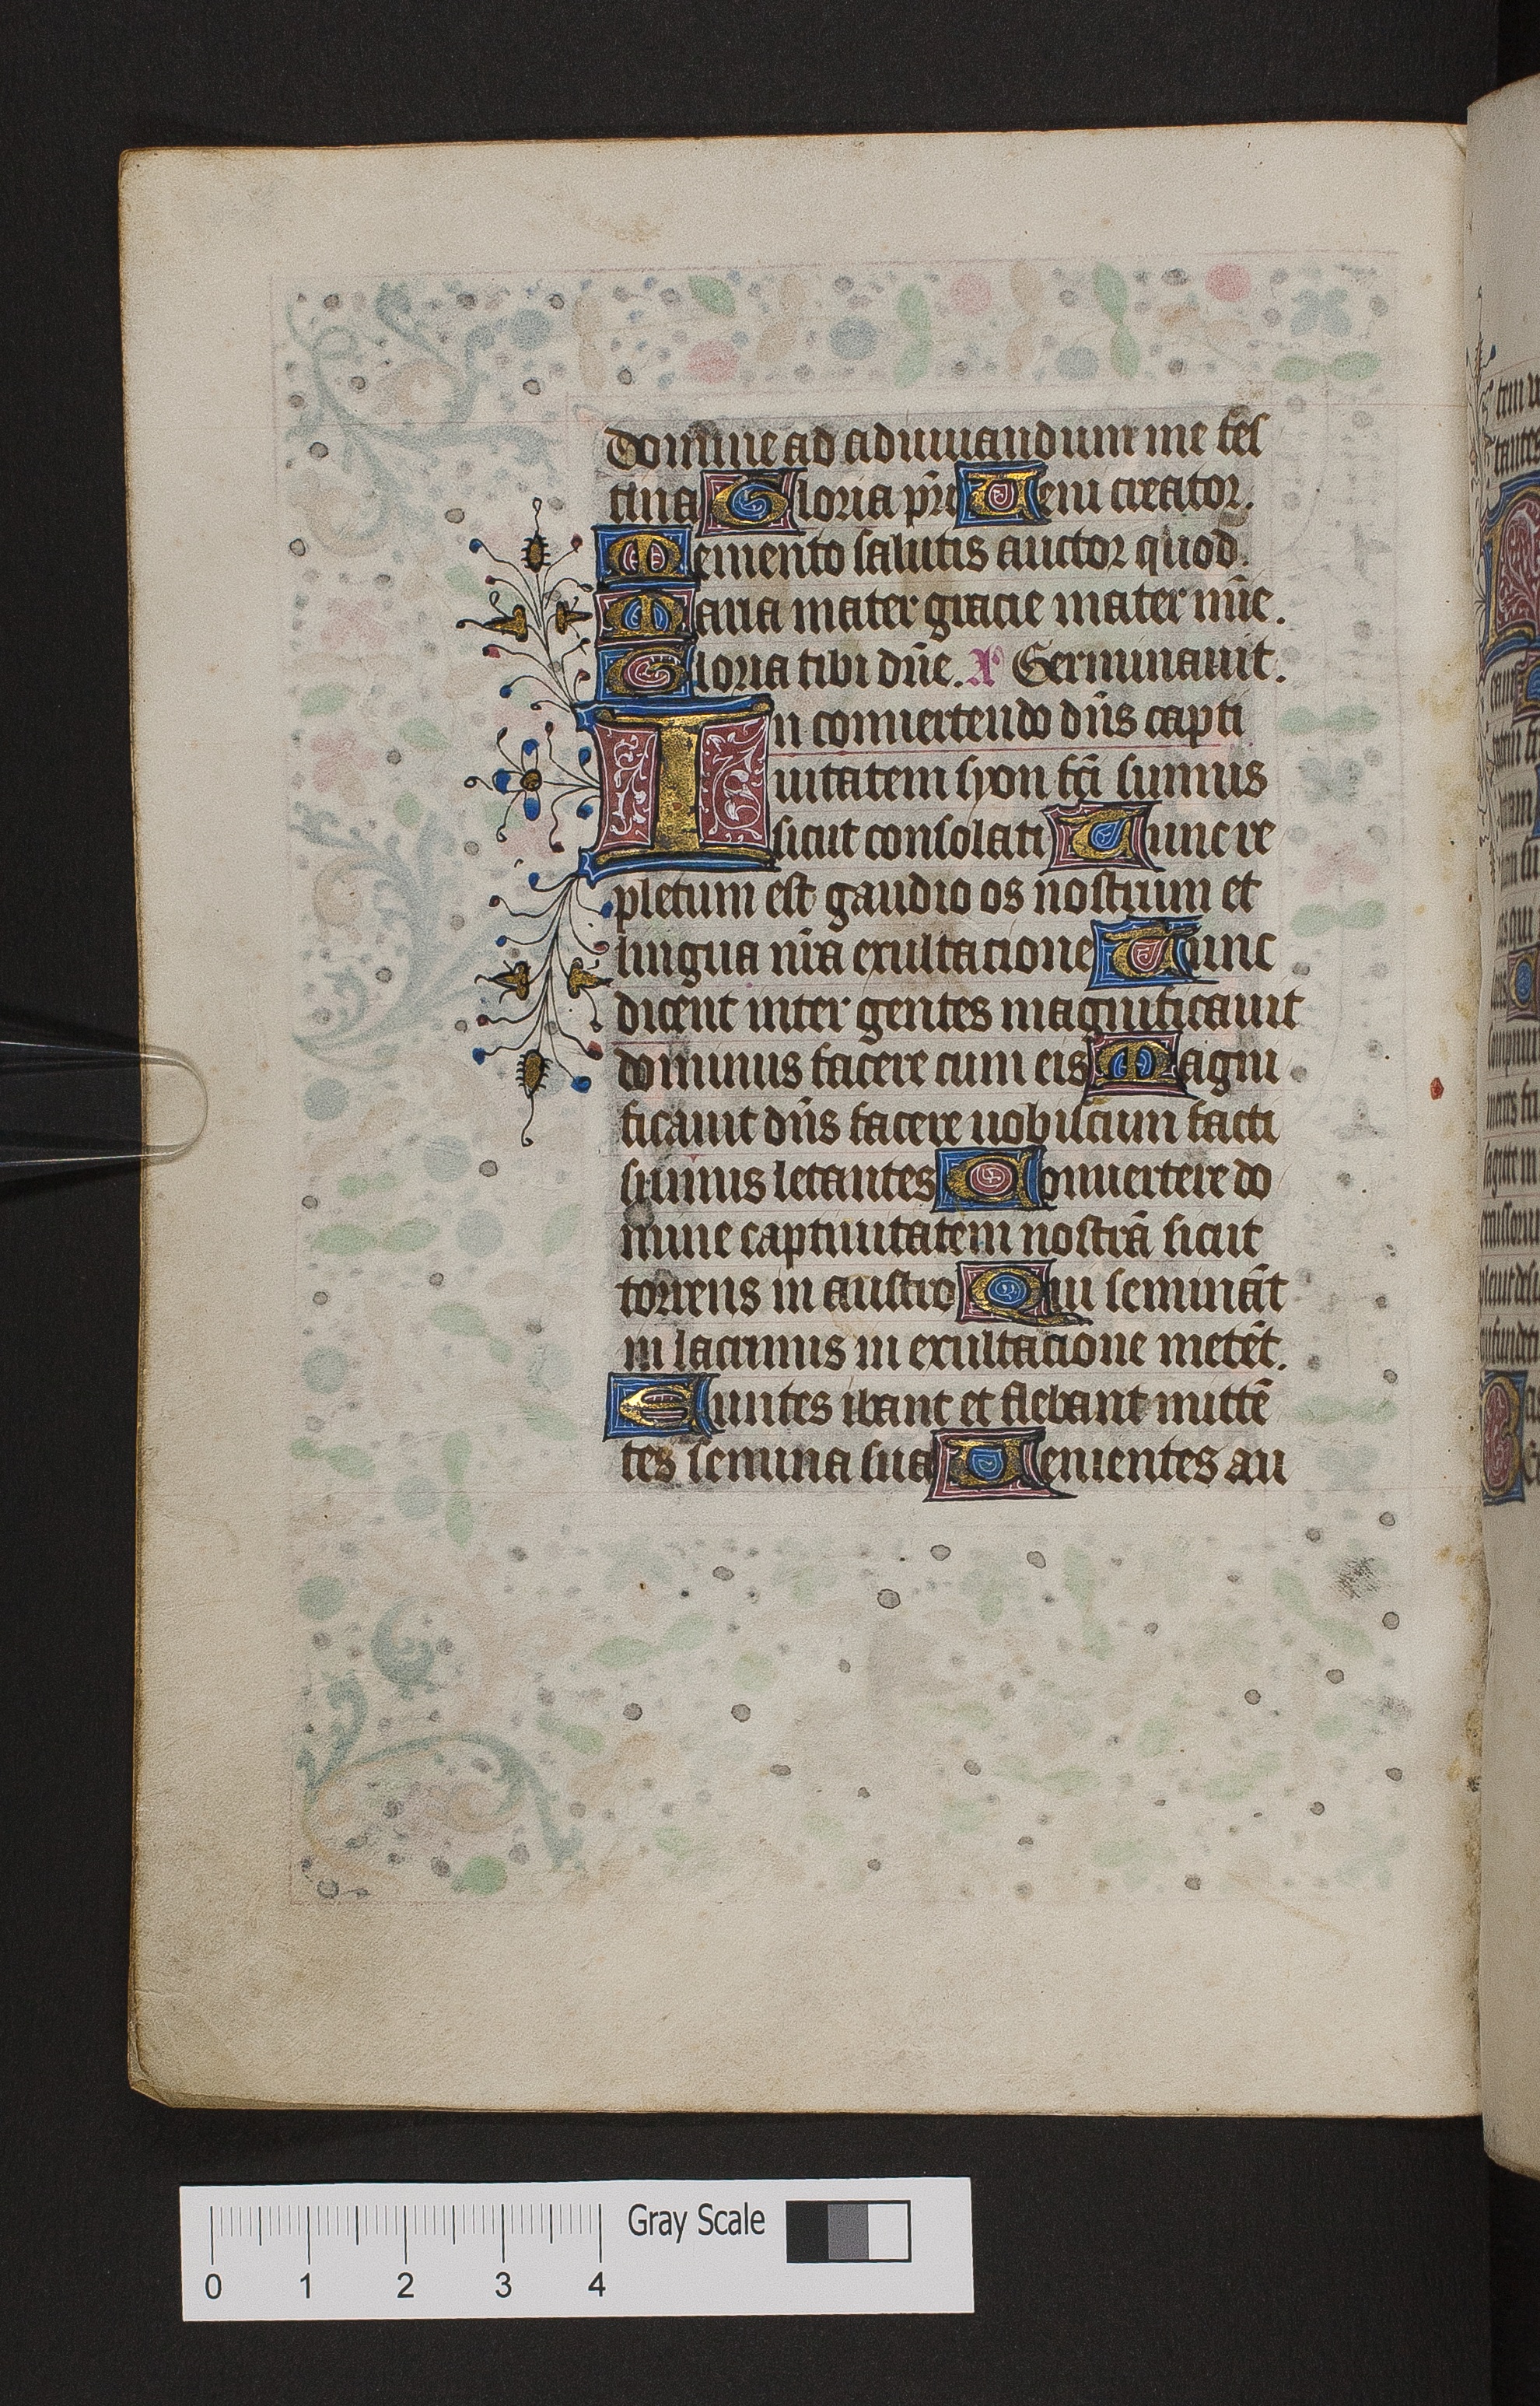 domine ad adiuuandum me fes
tina Gloria pr̄i Ueni creator.
Memento salutis auctor quod.
Maria mater gracie mater mīe.
Gloria tibi dn̄e. A Germinauit.
In conuertendo dn̄s capti
uitatem syon fcī sumus
sicut consolati Tunc re
pletum est gaudio os nostrum et
lingua nr̄a exultacione Tunc
dicent inter gentes magnificauit
dominus facere cum eis Magni
ficauit dn̄s facere nobiscum facti
sumus letantes Conuertere do
mine captiuitatem nostrā sicut
torrens in austro Qui semināt
in lacrimis in exultacione metēt.
Euntes ibant et flebant mittē
tes semina sua Uenientes au
Gray Scale
0 1 2 3 4